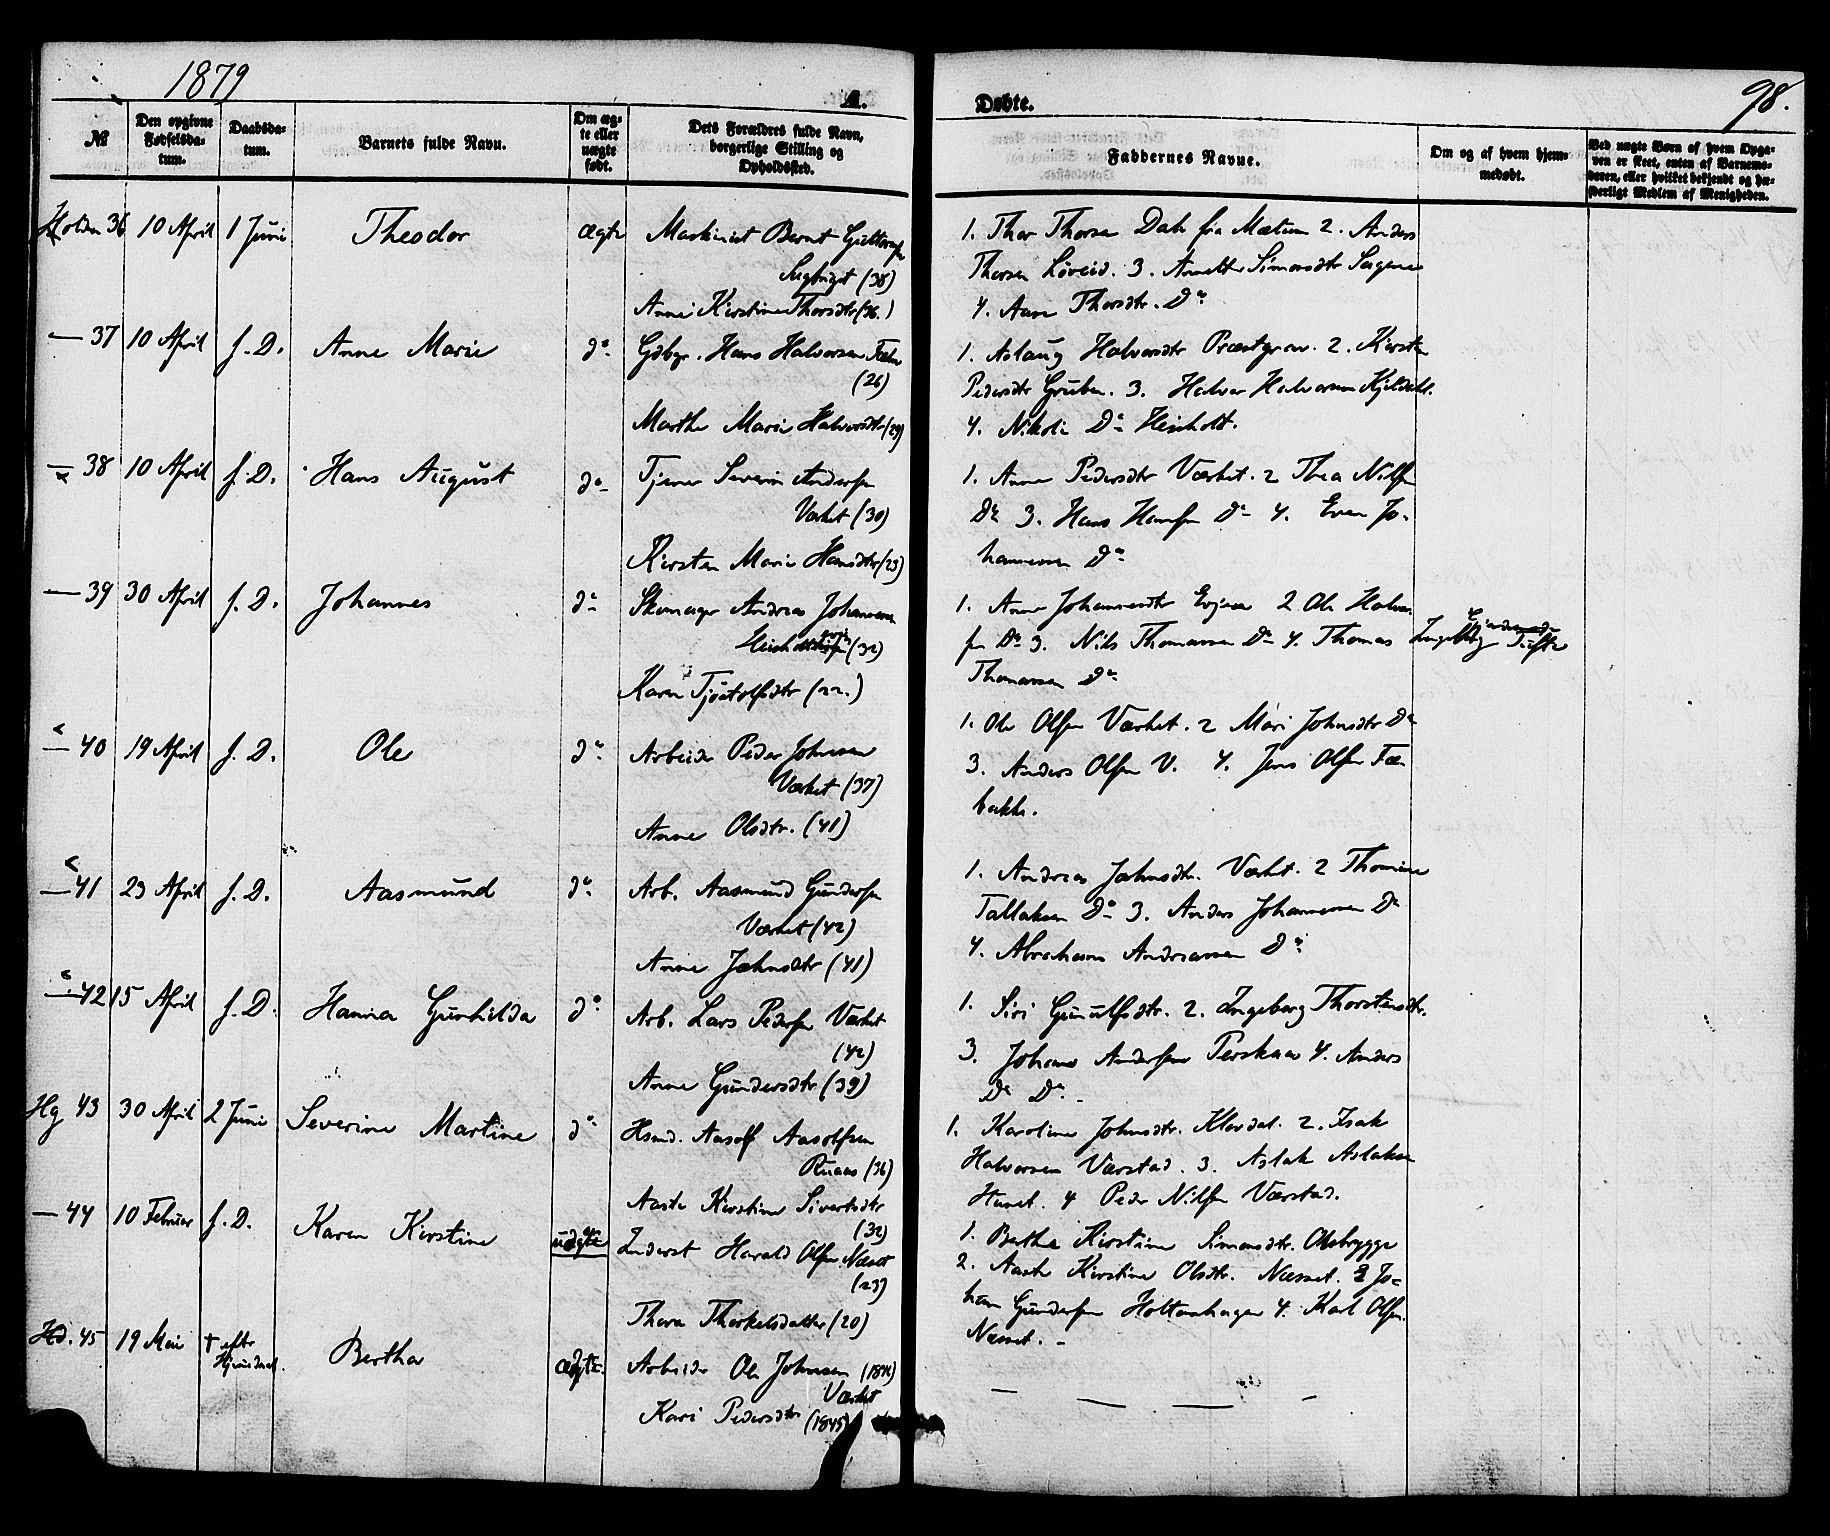 1879
A. Døbte.
98.
№
Den opgivne Fødselsdatum.
Daabsdatum.
Barnets fulde Navn.
Om ægte eller uægte født.
Dets Forældres fulde Navn, borgerlige Stilling og Opholdssted.
Faddernes Navne.
Om og af hvem hjemmedøbt.
Ved uægte Børn af hvem Opgaven er skeet, enten af Barnemoderen, eller hvilket bekjendt og hæderligt Medlem af Menigheden.
Holden 36 10 April 1 Juni Theodor ægte Maskinist Bernt
(38)
Anne Kirstine Thorsdtr (36.)
1. Thor Thorsen Dal fra Mælum 2. Anders
Thorsen Løveid. 3. Simonsdtr
4. Thorsdtr. Do
— 37 10 April f. D. Anne Marie do Gdbgr. Hans Halvorsen
(26)
Marthe Marie Halvorsdtr (29)
1. Aslaug Halvorsdtr 2. Kirsten
Pedersdtr Gruben. 3. Halvor Halvorsen
4. Nikoli Do
— 38 10 April f. D. Hans August do Tjener Severin Andersen
Værket (30)
Kirsten Marie Hansdtr (23)
1. Anne Pedersdtr Værket. 2 Thea Nilsen
Do 3. Hans Hansen Do 4. Even Jo-
hannessen Do
— 39 30 April f. D. Johannes do Skomager Andreas Johannesen
(32)
Karen Tjøstolfsdtr (22.)
1. Anne Johannesdtr 2 Ole Halvor-
sen Do 3. Nils Thomassen Do 4. Thomas
Thomassen Do
Ingeborg Tufte
— 40 19 April f. D. Ole do Arbeider Peder Johnsen
Værket (37)
Anne Olsdtr. (41)
1. Ole Olsen Værket. 2 Mari Johnsdtr Do
3. Anders Olsen V. 4. Jens Olsen Fæ-
bakke.
— 41 23 April f. D. Aasmund do Arb. Aasmund Gundersen
Værket (42)
Anne Jahnsdtr (41)
1. Andrea Jahnsdtr. Værket. 2 Thomine
Tallaksen Do 3. Anders Johannessen Do
4. Abraham Andreassen Do
— 42 15 April f. D. Hanna Gunhilda do Arb. Lars Pedersen Værket
(42)
Anne Gundersdtr (39)
1. Siri Gunulfsdtr. 2. Ingeborg Thorstensdtr.
3. Johan Andersen 4. Anders
Do Do. -
Hg 43 30 April 2 Juni Severine Martine do Hsmd. Aasolf Aasolfsen
(36)
Aaste Kirstine Sivertsdtr
(32)
1. Karoline Johnsdtr. Klovdal. 2. Isak
Halvorsen Værstad. 3. Aslak Aslaksen
4 Peder Nilsen Værstad.
— 44 10 Februar f. D. Karen Kirstine uægte Inderst Harald Olsen Næset
(23)
Thora Thorkelsdatter (20)
1. Berthe Kirstine Simonsdtr. Olsbrygge
2. Aaste Kirstine Olsdtr. Næsset. 3 Jo-
han Gundersen Holtanhagen 4. Karl Olsen
Næsset. -
Hd. 45 19 Mai † efter Hjemmedaab. Bertha ægte. Arbeider Ole Johnsen
Værket
Kari Pedersdtr (1845)